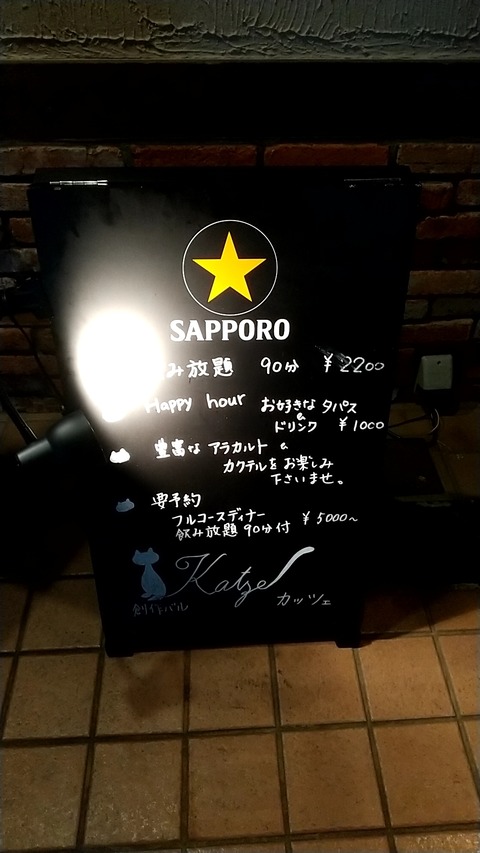 SAPPORO
み放題 90分 ¥2200
Happy hour お好きな タパス
&
ドリンク ¥1000
豊富な アラカルト &
カクテルをお楽しみ
下さいませ。
要予約
フルコースディナー
飲み放題90分付 ¥5000~
Katze
創作バル カッツェ